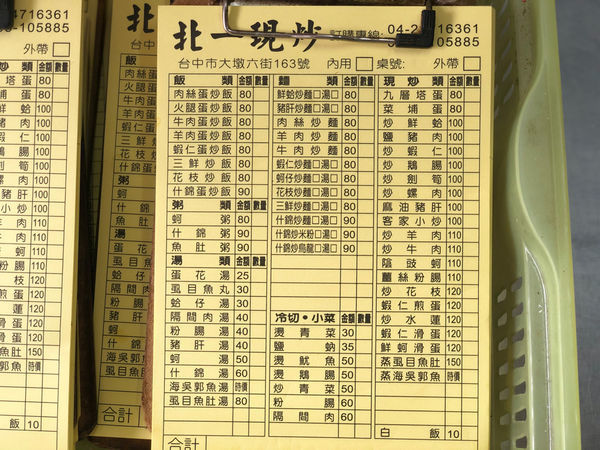 北一現炒
訂購專線:
04-2 716361
-105885
台中市大墩六街163號 內用□ 桌號: 外帶□
飯類 金額 數量
肉絲蛋炒飯 80
火腿蛋炒飯 80
牛肉蛋炒飯 80
羊肉蛋炒飯 80
蝦仁蛋炒飯 80
三鮮炒飯 80
花枝炒飯 80
什錦蛋炒飯 90
粥類 金額 數量
蚵粥 80
什錦粥 90
魚肚粥 90
湯類 金額 數量
蛋花湯 25
虱目魚丸 30
蛤仔湯 30
隔間肉湯 40
粉腸湯 40
蚵湯 50
什錦湯 60
海吳郭魚湯 時價
虱目魚肚湯 80
合計
麵類 金額 數量
鮮蛤炒麵□湯□ 80
豬肝炒麵□湯□ 80
肉絲炒麵 80
牛肉炒麵 80
羊肉炒麵 80
蝦仁炒麵□湯□ 80
蚵仔炒麵□湯□ 80
花枝炒麵□湯□ 80
三鮮炒麵□湯□ 80
什錦炒麵□湯□ 90
什錦炒米粉□湯□ 90
什錦炒烏龍□湯□ 90
冷切•小菜 金額 數量
燙青菜 30
鹽蚋 35
燙魷魚 50
燙鵝腸 50
炒青菜 50
粉腸 60
隔間肉 60
現炒類 金額 數量
九層塔蛋 80
菜埔蛋 80
炒鮮蛤 100
鹽豬肉 100
炒蝦仁 100
炒鵝腸 100
炒劍筍 100
炒螺肉 100
麻油豬肝 100
客家小炒 100
炒羊肉 110
炒牛肉 110
陰豉蚵 110
薑絲粉腸 110
炒花枝 120
蝦仁煎蛋 120
炒水蓮 120
蝦仁滑蛋 120
鮮蚵滑蛋 120
蒸虱目魚肚 150
蒸海吳郭魚 時價
白飯 10